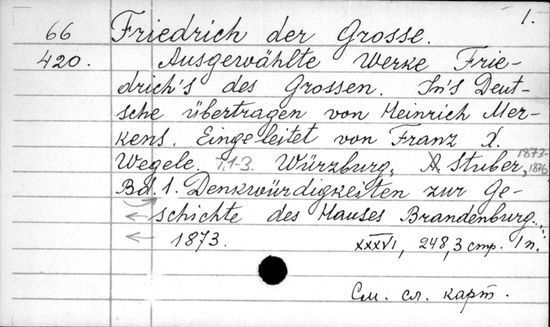 1.
66 Friedrich der Grosse.
420. Ausgewählte Werke Frie-
drich's des Grossen. In's Deut-
sche übertragen von Heinrich Mer-
kens. Eingeleitet von Franz X.
Wegele. T.1-3. Würzburg, A. Stuber, 1873-1876
Bd. 1. Denkwürdigkeiten zur Ge-
schichte des Hauses Brandenburg...
1873. XXXVI, 248,3 стр. 1 п.
См. сл. карт.